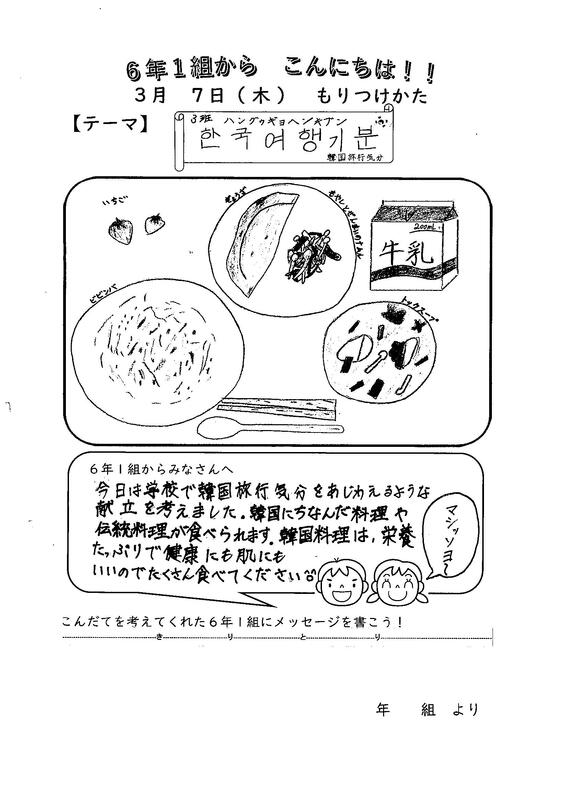 6年1組から こんにちは!!
3月 7日(木) もりつけかた
【テーマ】
3班 ハングゥギョヘンキブン
한국여행기분
韓国旅行気分
いちご
ぎょうざ
もやしとぜんまいのナムル
200mL
牛乳
ビビンバ
トックスープ
6年1組からみなさんへ
今日は学校で韓国旅行気分をあじわえるような
献立を考えました。韓国にちなんだ料理や
伝統料理が食べられます。韓国料理は、栄養
たっぷりで健康にも肌にも
いいのでたくさん食べてください
マシッソヨ〜
こんだてを考えてくれた6年1組にメッセージを書こう!
きりとり
年 組 より